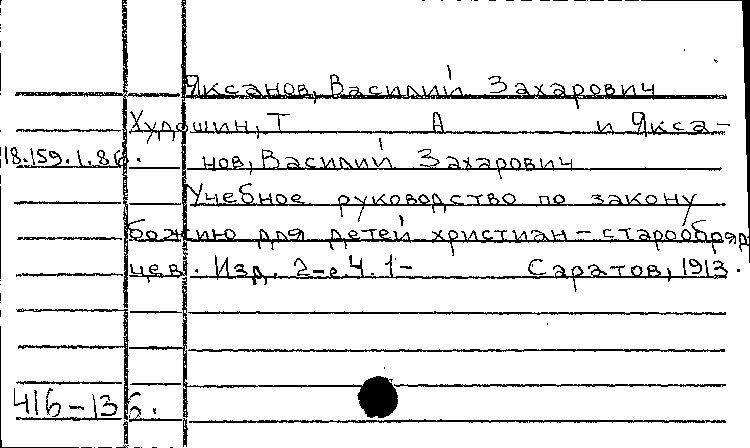 Яксанов, Василий Захарович
Худошин, Т А и Якса-
18.159.1.86. нов, Василий Захарович
Учебное руководство по закону
божию для детей христиан-старообряд
цев. Изд. 2-е. Ч. 1- Саратов, 1913.
416-13б.